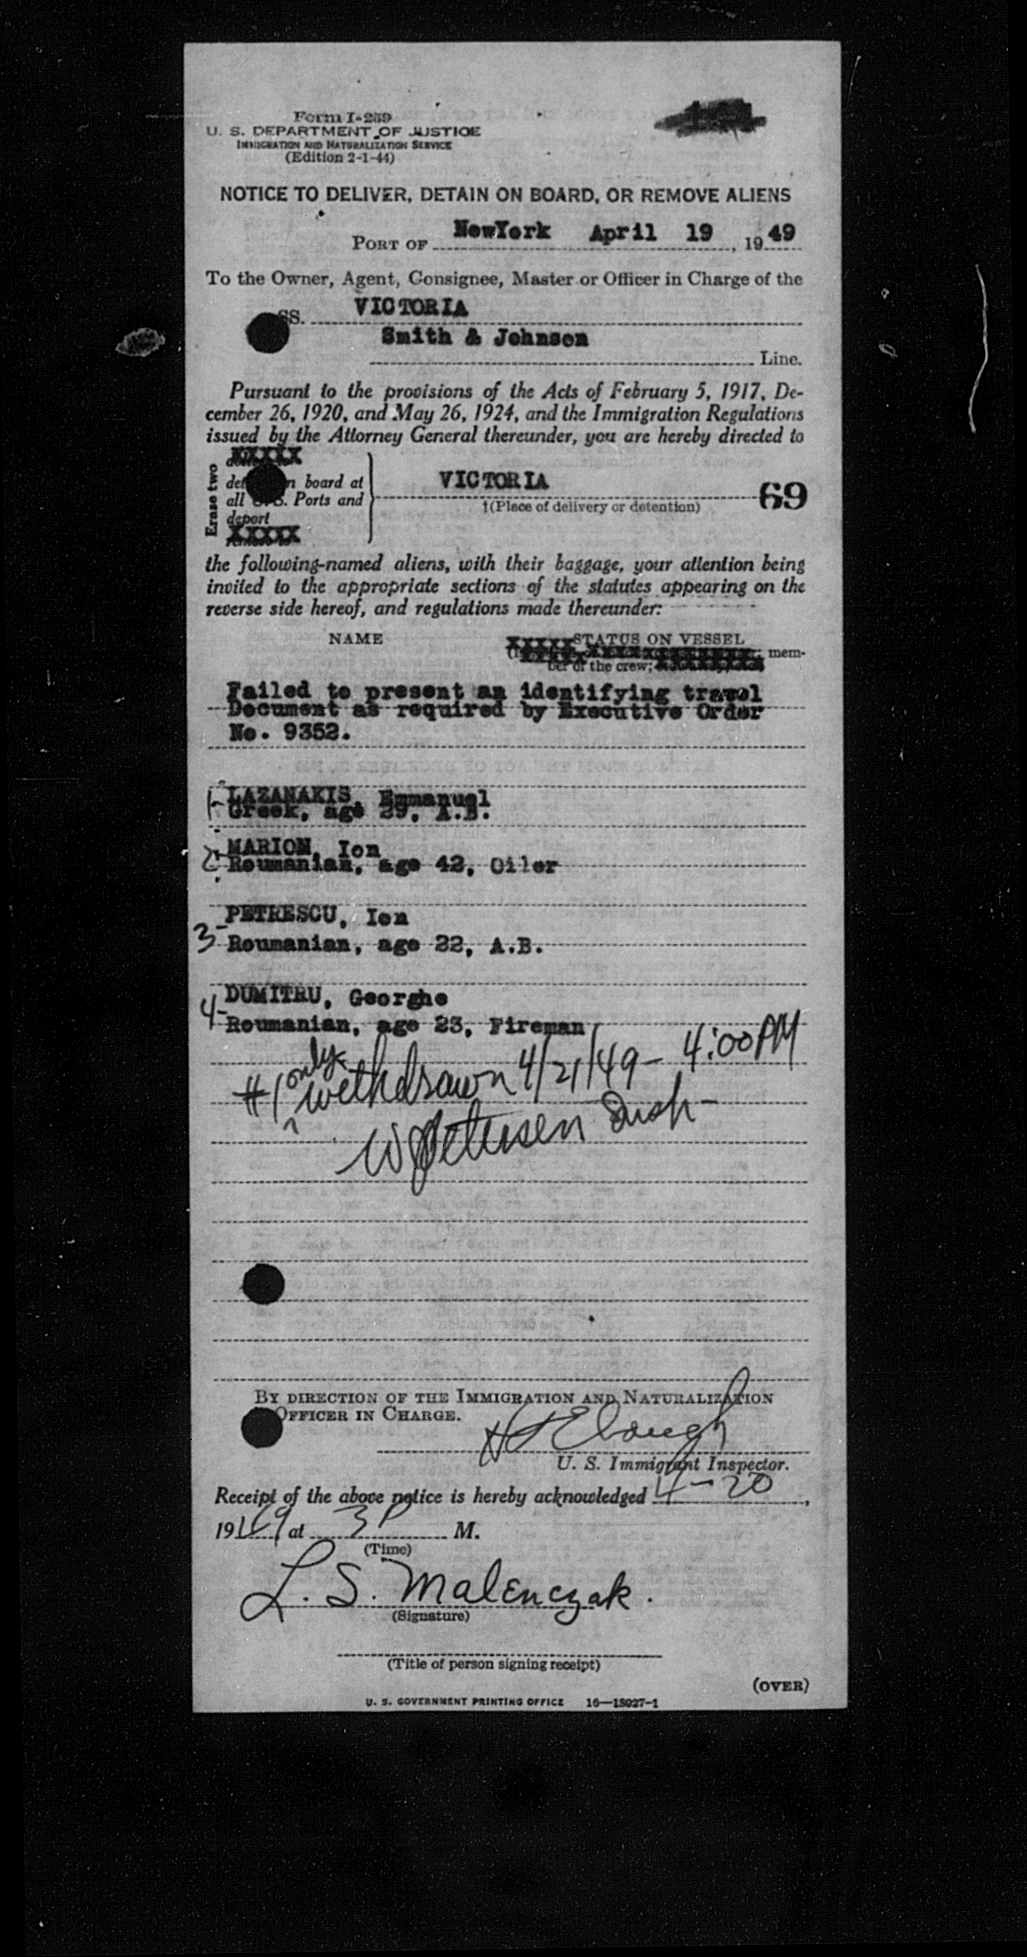 Form I-259
U. S. DEPARTMENT OF JUSTICE
IMMIGRATION AND NATURALIZATION SERVICE
(Edition 2-1-44)
NOTICE TO DELIVER, DETAIN ON BOARD, OR REMOVE ALIENS
PORT OF NewYork April 19, 1949
To the Owner, Agent, Consignee, Master or Officer in Charge of the
SS. VICTORIA
Smith & Johnson
Line.
Pursuant to the provisions of the Acts of February 5, 1917, De-
cember 26, 1920, and May 26, 1924, and the Immigration Regulations
issued by the Attorney General thereunder, you are hereby directed to
Erase two
XXXXX
n board at
all U.S. Ports and
deport
XXXXX
VICTORIA
†(Place of delivery or detention)
69
the following-named aliens, with their baggage, your attention being
invited to the appropriate sections of the statutes appearing on the
reverse side hereof, and regulations made thereunder:
NAME
STATUS ON VESSEL
mem-
ber of the crew;
Failed to present an identifying travel
Document as required by Executive Order
No. 9352.
1- LAZANAKIS, Emmanuel
Greek, age 29, A.B.
2- MARION, Ion
Roumanian, age 42, Oiler
3- PETRESCU, Ion
Roumanian, age 22, A.B.
4- DUMITRU, Georghe
Roumanian, age 23, Fireman
#1 only withdrawn 4/21/49- 4:00 PM
W Petersen
BY DIRECTION OF THE IMMIGRATION AND NATURALIZATION
OFFICER IN CHARGE.
H Clough
U. S. Immigrant Inspector.
Receipt of the above notice is hereby acknowledged 4-20,
1949 at 3 P M.
(Time)
L. S. Malenczak.
(Signature)
(Title of person signing receipt)
(OVER)
U. S. GOVERNMENT PRINTING OFFICE 16-18927-1